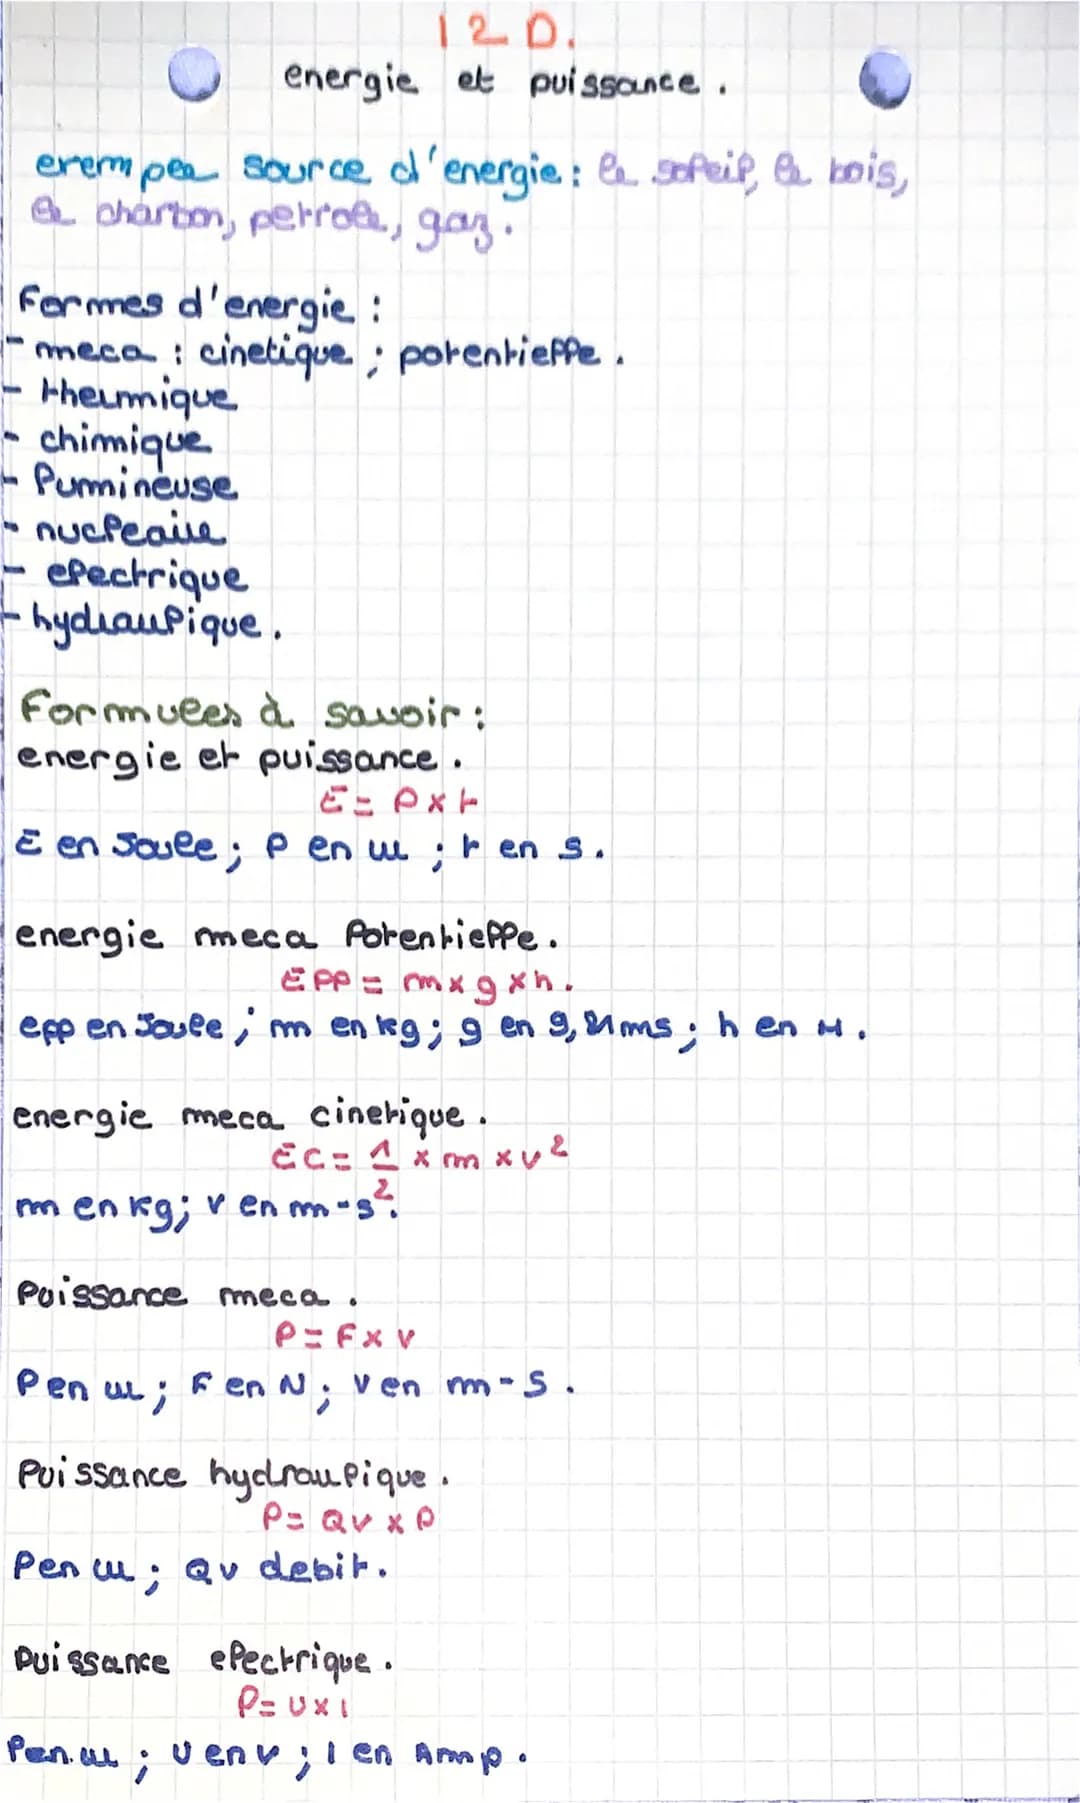 I2D.
energie et puissance.
exemples source d'energie : le soleil, le bois,
le charbon, petrole, gaz.
Formes d'energie :
- meca : cinetique ; potentielle.
- thermique
- chimique
- lumineuse
- nucleaire
- electrique
- hydraulique.
Formules à savoir :
energie et puissance.
E = P x t
E en Joule ; P en W ; t en s.
energie meca Potentielle.
EPP = m x g x h.
epp en Joule ; m en kg ; g en 9,81ms ; h en M.
energie meca cinetique.
EC = 1/2 x m x v²
m en kg ; v en m-s².
Puissance meca.
P = F x v
P en W ; F en N ; v en m-s.
Puissance hydraulique.
P = Qv x P
P en W ; Qv debit.
Puissance electrique.
P = U x I
P en W ; U en V ; I en Amp.